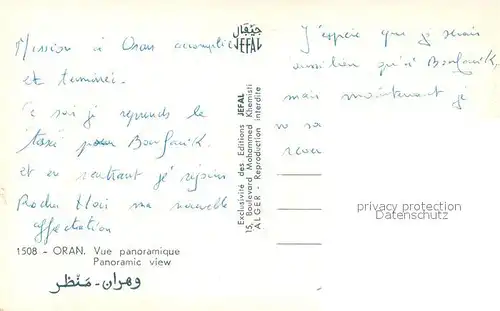 Mission à Oran accomplie
et terminée.
Ce soir je reprends le
taxi pour Bousfanik.
et en rentrant je rejoins
Rocher Noir ma nouvelle
affectation
1508 - ORAN. Vue panoramique
Panoramic view
وهران - منظر
جيفال
JEFAL
Exclusivité des Editions JEFAL
15, Boulevard Mohammed Khemisti
ALGER - Reproduction interdite
J'espère que je serais
aussi bien qu'à Bousfanik,
mais maintenant je
privacy protection
Datenschutz